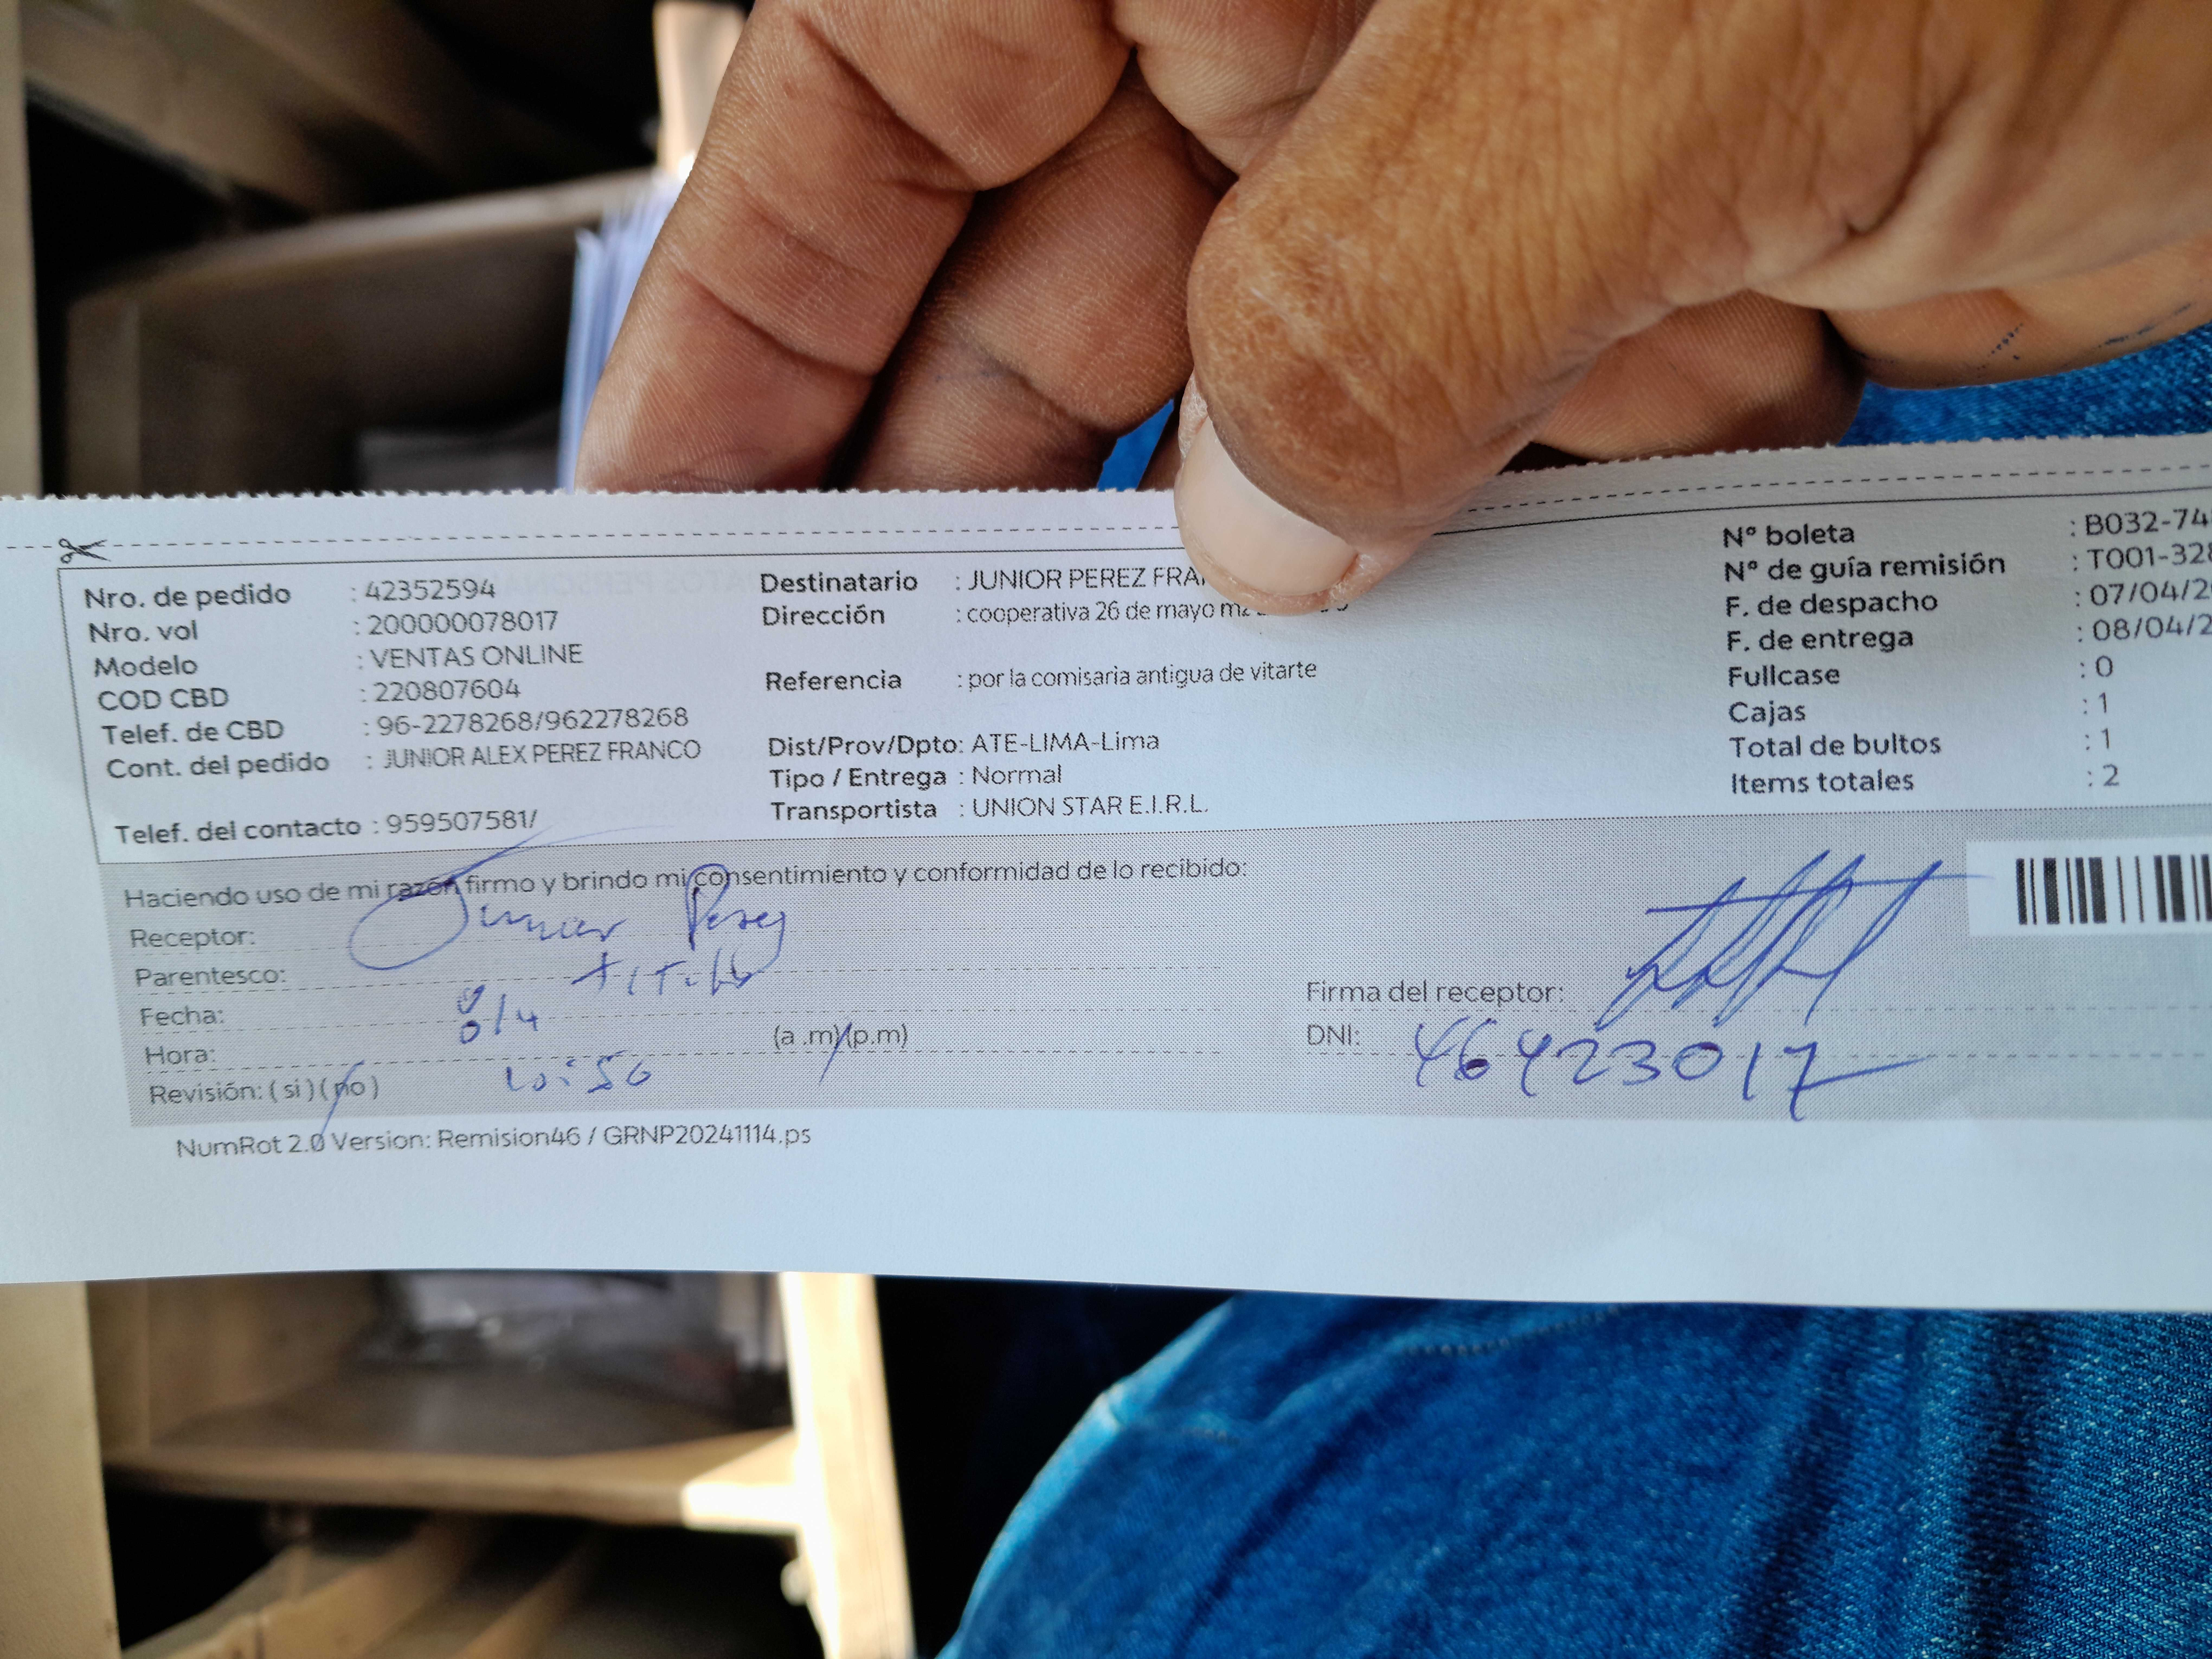 Nro. de pedido : 42352594
Nro. vol : 200000078017
Modelo : VENTAS ONLINE
COD CBD : 220807604
Telef. de CBD : 96-2278268/962278268
Cont. del pedido : JUNIOR ALEX PEREZ FRANCO
Telef. del contacto : 959507581/
Destinatario : JUNIOR PEREZ
Dirección : cooperativa 26 de mayo
Referencia : por la comisaria antigua de vitarte
Dist/Prov/Dpto: ATE-LIMA-Lima
Tipo / Entrega : Normal
Transportista : UNION STAR E.I.R.L.
Nº boleta : B032-74
Nº de guía remisión : T001-328
F. de despacho : 07/04/2
F. de entrega : 08/04/2
Fullcase : 0
Cajas : 1
Total de bultos : 1
Items totales : 2
Haciendo uso de mi razón firmo y brindo mi consentimiento y conformidad de lo recibido:
Receptor: Junior Perez
Parentesco: titular
Fecha: 8/4
Hora: (a .m)(p.m)
10:50
Revisión: ( si ) ( no )
Firma del receptor:
DNI: 46423017
NumRot 2.0 Version: Remision46 / GRNP20241114.ps